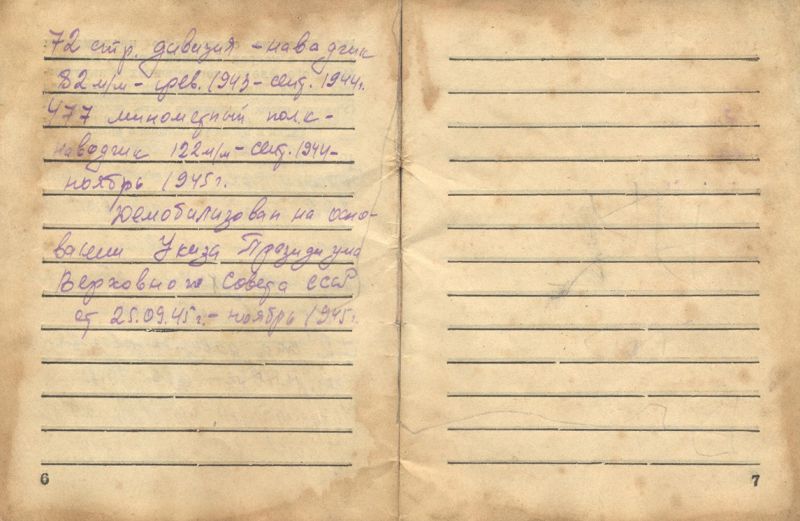 72 стр. дивизия – наводчик
82 м/м – фев. 1943 – сент. 1944г.
477 минометный полк –
наводчик 122 м/м – сент. 1944 –
ноябрь 1945 г.
Демобилизован на осно-
вании Указа Президиума
Верховного Совета СССР
от 25.09.45 г. – ноябрь 1945г.
6
7